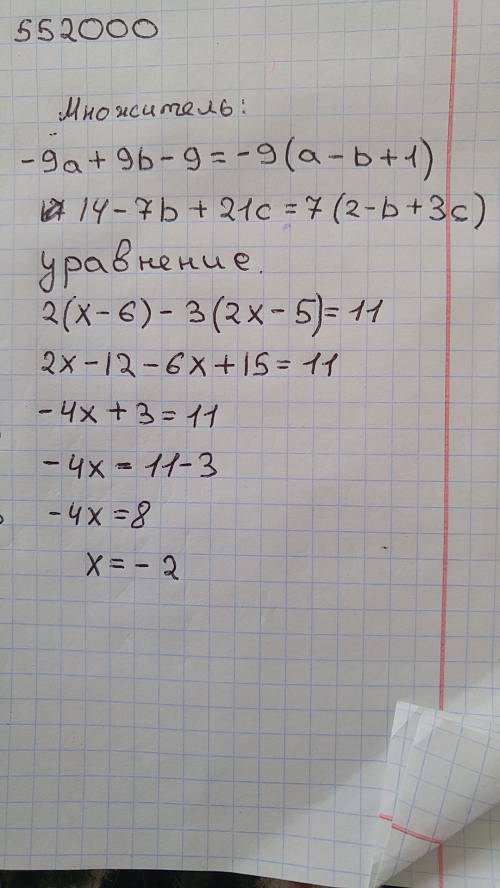 552000
Множитель:
-9a + 9b - 9 = -9(a - b + 1)
14 - 7b + 21c = 7(2 - b + 3c)
уравнение.
2(x - 6) - 3(2x - 5) = 11
2x - 12 - 6x + 15 = 11
-4x + 3 = 11
-4x = 11 - 3
-4x = 8
x = -2